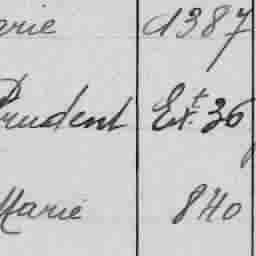 arie d1387
Prudent Ext. 36
Marie 840